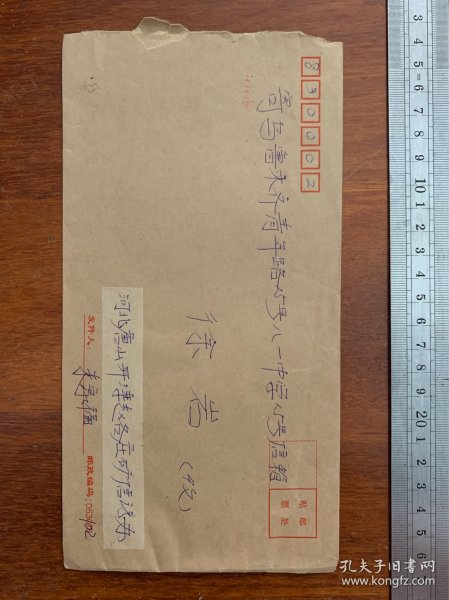 830002
寄乌鲁木齐青年路15号八一中学15号信箱
徐 (收)
贴邮
票处
河北唐山开滦赵各庄矿信访办
发件人: 邮政编码:063102
3 4 5 6 7 8 9 10 1 2 3 4 5 6 7 8 9 20 1 2 3 4 5 6
孔夫子旧书网
www.kongfz.com